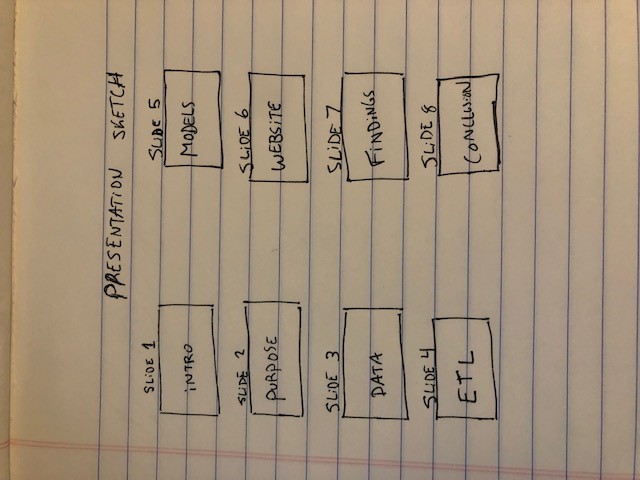 PRESENTATION SKETCH
SLIDE 1
INTRO
SLIDE 2
PURPOSE
SLIDE 3
DATA
SLIDE 4
ETL
SLIDE 5
MODELS
SLIDE 6
WEBSITE
SLIDE 7
FINDINGS
SLIDE 8
CONCLUSION